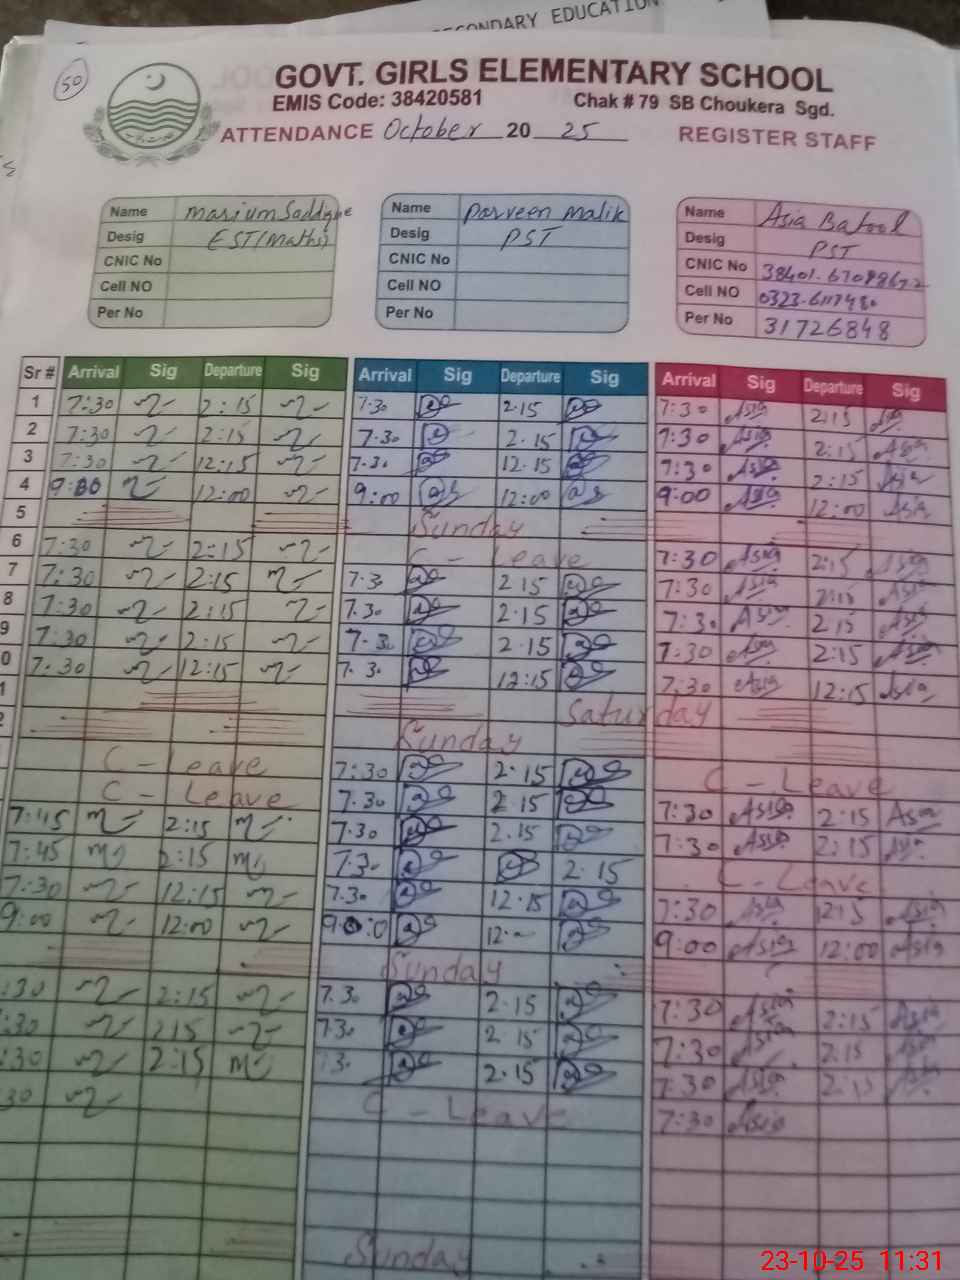 SECONDARY EDUCATION
50
GOVT. GIRLS ELEMENTARY SCHOOL
EMIS Code: 38420581 Chak # 79 SB Choukera Sgd.
ATTENDANCE October 20 25 REGISTER STAFF
Name Marium Saddique Name Parveen Malik Name Asia Batool
Desig EST(Maths) Desig PST Desig PST
CNIC No CNIC No CNIC No
Cell NO Cell NO Cell NO 0323-6117480
Per No Per No Per No 31726848
Sr # Arrival Sig Departure Sig Arrival Sig Departure Sig Arrival Sig Departure Sig
1 7:30 2:15 7.30 2.15 7:30 Asia 2:15 Asia
2 7:30 2:15 7.30 2.15 7:30 Asia 2:15 Asia
3 7:30 12:15 7.30 12.15 7:30 Asia 2:15 Asia
4 9:00 12:00 9:00 12:00 9:00 Asia 12:00 Asia
5 Sunday
6 7:30 2:15 C - Leave 7:30 Asia 2:15 Asia
7 7:30 2:15 7.3 2 15 7:30 Asia Asia
8 7:30 2:15 7.30 2.15 7:30 Asia 2 15 Asia
9 7:30 2:15 7.30 2.15 7:30 Asia 2:15 Asia
0 7:30 12:15 7.30 12:15 7:30 Asia 12:15 Asia
1 Saturday
2 Sunday
C - Leave 7:30 2.15 C - Leave
C - Leave 7.30 2 15 7:30 Asia 2:15 Asia
7:45 2:15 7.30 2.15 7:30 Asia 2:15 Asia
7:45 2:15 7.3 2.15 C - Leave
7:30 12:15 7.30 12.15 7:30 Asia Asia
9:00 12:00 9:00 9:00 Asia 12:00 Asia
Sunday
:30 2:15 7.30 2.15 7:30 Asia 2:15 Asia
:30 215 7.30 2 15 7:30 Asia 2:15 Asia
:30 2:15 30 2.15 7:30 Asia 2:15 Asia
30 C - Leave 7:30 Asia
Sunday
23-10-25 11:31